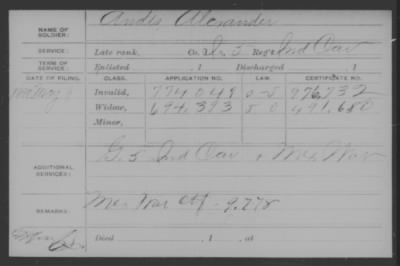 NAME OF SOLDIER: Andis, Alexander
SERVICE: Late rank, Co. L, 5 Reg't Ind Cav
TERM OF SERVICE: Enlisted , 1 Discharged , 1
DATE OF FILING. CLASS. APPLICATION NO. LAW. CERTIFICATE NO.
Invalid, 774,049 976,732
Widow, 694,393 491,680
Minor,
ADDITIONAL SERVICES: G. 5 Ind Cav + Mex War
REMARKS: Mex War 9,778
Died , 1 , at